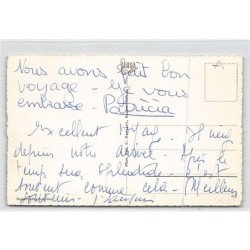 Nous avons fait bon
voyage - Je vous
embrasse - Patricia
Excellent voyage. Il neige
depuis notre arrivée. Après le
temps sera splendide. C'est
souvent comme cela. Meilleurs
souvenirs.